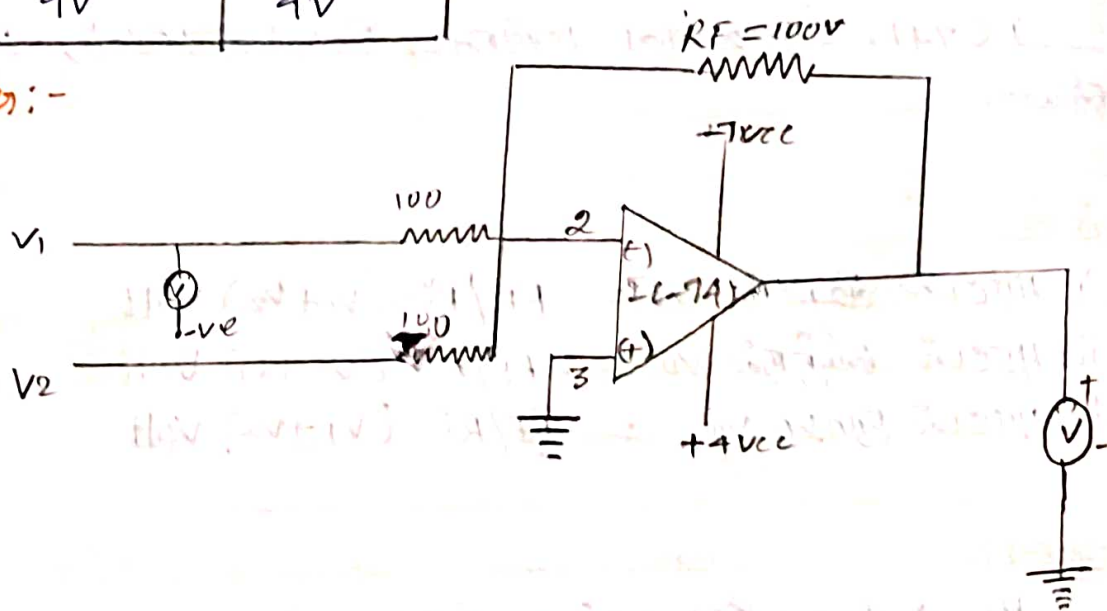 4V 4V
RF=100V
+7vcc
100
V1
2
(-)
-ve
100
V2
(+)
3
+4vcc
+
V
-